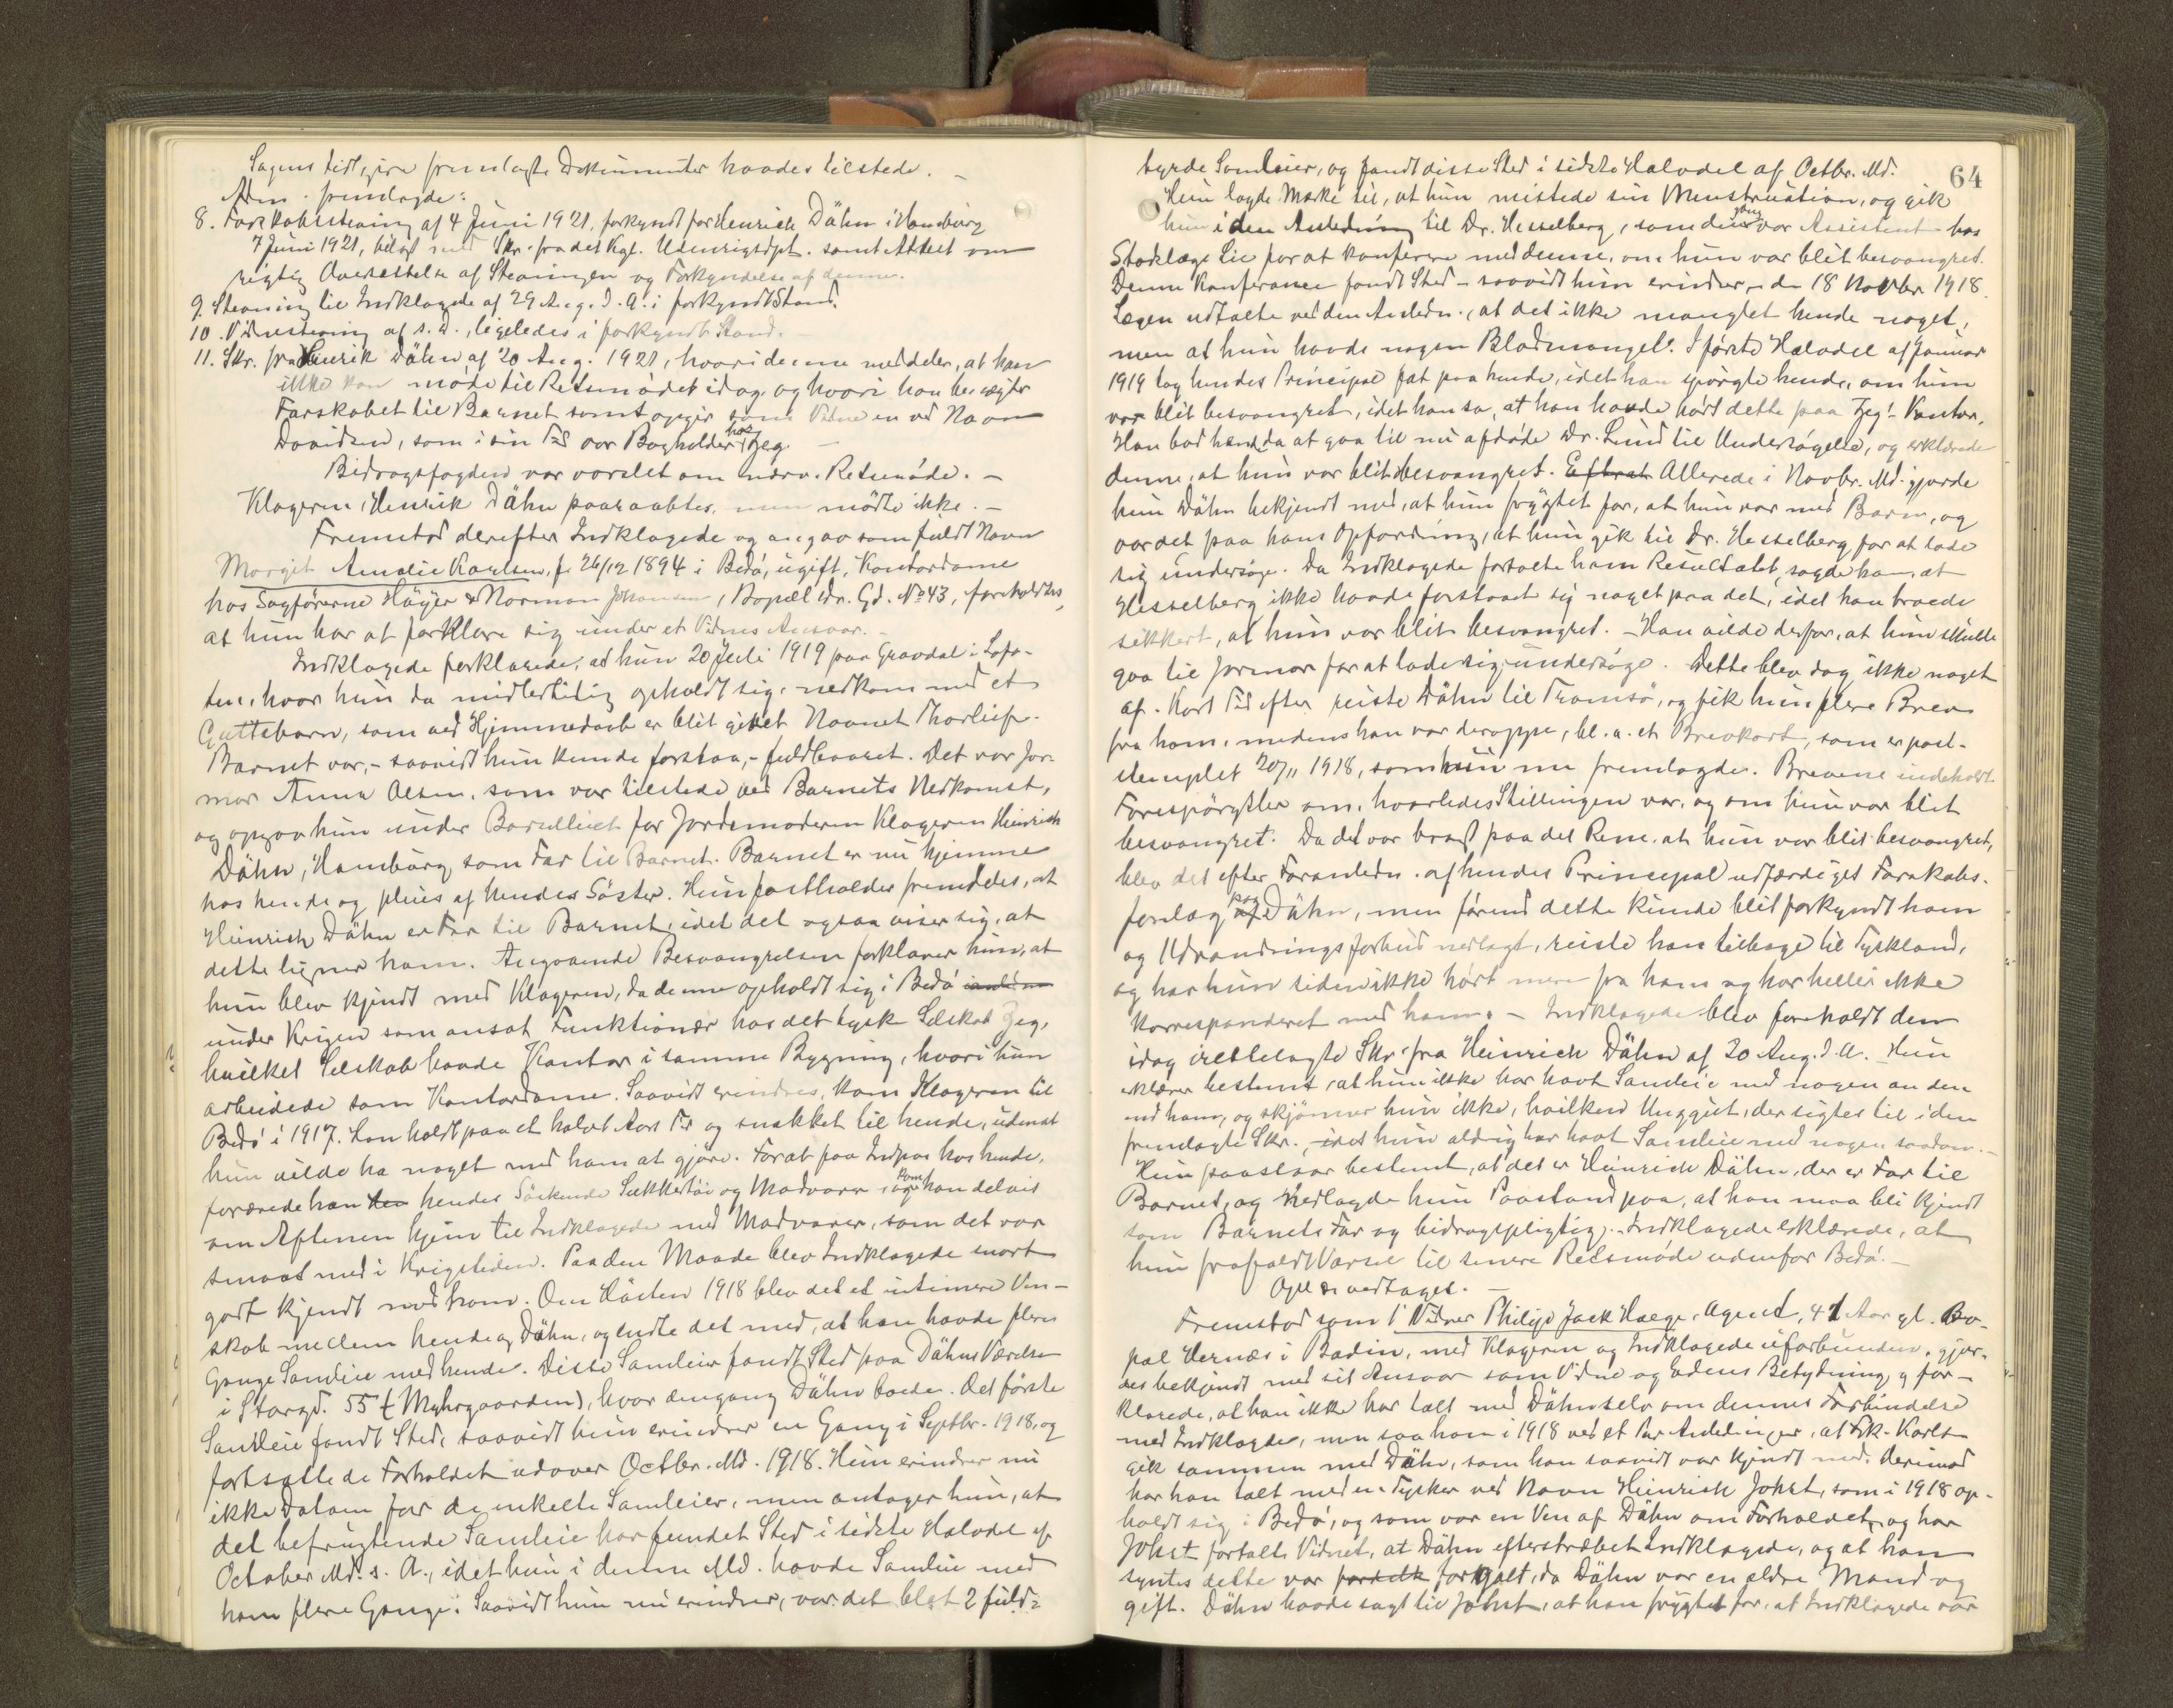 Sagens tidligere fremlagte Dokumenter havdes tilstede. –
Adm. fremlagde:
8. Farskabsstevning af 4 Juni 1921, forkyndt for Henrich Dähn i Hamburg
7 Juni 1921, bilagt med Skr. fra det Kgl. Utenrigsdpt. samt Attest om
rigtig Oversættelse af Stevningen og Forkyndelse af denne.
9. Stevning til Indklagede af 29 Aug. d. A. i forkyndt Stand.
10. Vidnestevning af s. D., ligeledes i forkyndt Stand.
11. Skr. fra Henrik Dähn af 20 Aug. 1921, hvori denne meddeler, at han
ikke kan møde til Retsmødet idag og hvori han benægter
Farskabet til Barnet samt opgir som Vidne en ved Navn
Davidsen, som i sin Tid var Bogholder hos Zeg. –
Bidragsfogden var varslet om nærv. Retsmøde. –
Klageren, Henrik Dähn paaraabtes, men mødte ikke. –
Fremstod derefter Indklagede og angav som fuldt Navn
Margit Amalie Karlsen, f. 26/12 1894 i Bodø, ugift, Kontordame
hos Sagførerne Høyer & Norman Johansen, Bopæl Dr. Gd. No 43, foreholdtes,
at hun har at forklare sig under et Vidnes Ansvar. –
Indklagede forklarede, at hun 20 Juli 1919 paa Gravdal i Lofo-
ten, hvor hun da midlertidig opholdt sig, nedkom med et
Guttebarn, som ved Hjemmedaab er blit givet Navnet Thorleif.
Barnet var, – saavidt hun kunde forstaa, – fuldbaaret. Det var Jor-
mor Anna Olsen, som var tilstede ved Barnets Nedkomst,
og opgav hun under Barselleiet for Jordemoderen Klageren Heinrich
Dähn, Hamburg som Far til Barnet. Barnet er nu hjemme
hos hende og pleies af hendes Søster. Hun fastholder fremdeles, at
Heinrich Dähn er Far til Barnet, idet det ogsaa viser sig, at
dette ligner ham. Angaaende Besvangrelsen forklarer hun, at
hun blev kjendt med Klageren, da denne opholdt sig i Bodø
under Krigen som ansat Funktionær hos det tyske Selskab Zeg,
hvilket Selskab havde Kontor i samme Bygning, hvori hun
arbeidede som Kontordame. Saavidt erindres, kom Klageren til
Bodø i 1917. Han holdt paa et halvt Aars Tid og snakket til hende, udenat
hun vilde ha noget med ham at gjøre. For at faa Indpas hos hende,
forærede han hendes Søskende Sukkertøi og Madvarer, og kom han delvis
om Aftenen hjem til Indklagede med Madvarer, som det var
smaat med i Krigstiden. Paa den Maade blev Indklagede snart
godt kjendt med ham. Om Høsten 1918 blev det et intimere Ven-
skab mellem hende og Dähn, og endte det med, at han havde flere
Gange Samleie med hende. Disse Samleier fandt Sted paa Dähns Værelse
i Storgd. 55 (Myhrgaarden), hvor dengang Dähn boede. Det første
Samleie fandt Sted, saavidt hun erindrer en Gang i Septbr. 1918, og
fortsattede Forholdet udover Octbr. Md. 1918. Hun erindrer nu
ikke Datoen for de enkelte Samleier, men antager hun, at
det befrugtende Samleie har fundet Sted i sidste Halvdel af
October Md. s. A., idet hun i denne Md. havde Samleie med
ham flere Gange. Saavidt hun nu erindrer, var det blot 2 fuld-
64
byrde Samleier, og fandt disse Sted i sidste Halvdel af Octbr. Md.
Hun lagde Mærke til, at hun mistede sin Menstruation, og gik
hun i den Anledning til Dr. Hesselberg, som dengang var Assistent hos
Stadslæge Lie for at konferere med denne, om hun var blit besvangret.
Denne Konferance fandt Sted – saavidt hun erindrer, – den 18 Novbr 1918.
Lægen udtalte ved den Anledn., at det ikke manglet hende noget,
men at hun havde nogen Blodmangel. I første Halvdel af Januar
1919 tog hendes Principal fat paa hende, idet han spørgte hende, om hun
var blit besvangret, idet han sa, at han havde hørt dette paa Zeg's Kontor.
Han bad hende da at gaa til nu afdøde Dr. Lund til Undersøgelse, og erklærede
denne, at hun var blit besvangret. Efterat Allerede i Novbr. Md. gjorde
hun Dähn bekjendt med, at hun frygtet for, at hun var med Barn, og
var det paa hans Opfordring, at hun gik til Dr. Hesselberg for at lade
sig undersøge. Da Indklagede fortalte ham Resultatet, sagde han, at
Hesselberg ikke havde forstaaet sig noget paa det, idet han troede
sikkert, at hun var blit besvangret. – Han vilde derfor, at hun skulde
gaa til Jormor for at lade sig undersøge. Dette blev dog ikke noget
af. Kort Tid efter reiste Dähn til Tromsø, og fik hun flere Brev
fra ham, medens han var deroppe, bl. a. et Brevkort, som er post-
stemplet 20/11 1918, som hun nu fremlagde. Brevene indeholdt
Forespørgsler om, hvorledes Stillingen var, og om hun var blit
besvangret. Da det var bragt paa det Rene, at hun var blit besvangret,
blev det efter Foranledn. af hendes Principal udfærdiget Farskabs-
forelæg paa Dähn, men førend dette kunde blit forkyndt ham
og Udvandringsforbud nedlagt, reiste han tilbage til Tyskland,
og har hun siden ikke hørt mere fra ham og har heller ikke
korresponderet med ham. – Indklagede blev foreholdt den
idag irettelagte Skr. fra Heinrich Dähn af 20 Aug. d. A. Hun
erklærer bestemt, at hun ikke har havt Samleie med nogen anden
end ham, og skjønner hun ikke, hvilken Unggut, der sigtes til i den
fremlagte Skr., idet hun aldrig har havt Samleie med nogen saadan. –
Hun paastaar bestemt, at det er Heinrich Dähn, der er Far til
Barnet, og nedlagde hun Paastand paa, at han maa bli kjendt
som Barnets Far og bidragspligtig. Indklagede erklærede, at
hun frafaldt Varsel til senere Retsmøde udenfor Bodø. –
Opl. & vedtaget. –
Fremstod som 1 Vidne Philip Jack Hæge, Agent, 41 Aar gl. Bo-
pæl Hernæs i Bodin, med Klageren og Indklagede uforbunden, gjør-
des bekjendt med sit Ansvar som Vidne og Edens Betydning, og for-
klarede, at han ikke har talt med Dähn selv om dennes Forbindelse
med Indklagede, men saa ham i 1918 ved et Par Anledninger, at Frk. Karlsen
gik sammen med Dähn, som han saavidt var kjendt med. Derimod
har han talt med en Tysker ved Navn Heinrich Johst, som i 1918 op-
holdt sig i Bodø, og som var en Ven af Dähn om Forholdet, og har
Johst fortalt Vidnet, at Dähn efterstræbet Indklagede, og at han
syntes dette var forgalt, da Dähn var en ældre Mand og
gift. Dähn havde sagt til Johst, at han frygtet for, at Indklagede var